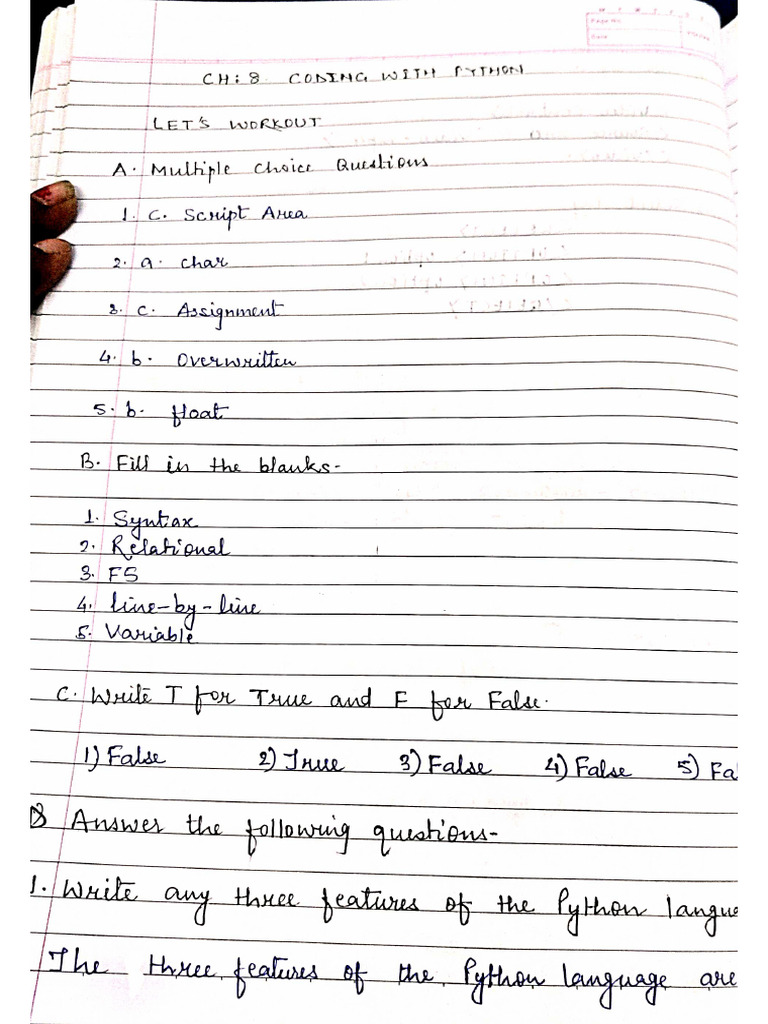 Page No.
Date
CH: 8 CODING WITH PYTHON
LET'S WORKOUT
A. Multiple Choice Questions
1. C. Script Area
2. a. char
3. c. Assignment
4. b. Overwritten
5. b. float
B. Fill in the blanks-
1. Syntax
2. Relational
3. F5
4. line-by-line
5. Variable
C. Write T for True and F for False.
1) False 2) True 3) False 4) False 5) Fa
Answer the following questions-
1. Write any three features of the Python langua
The three features of the Python language are